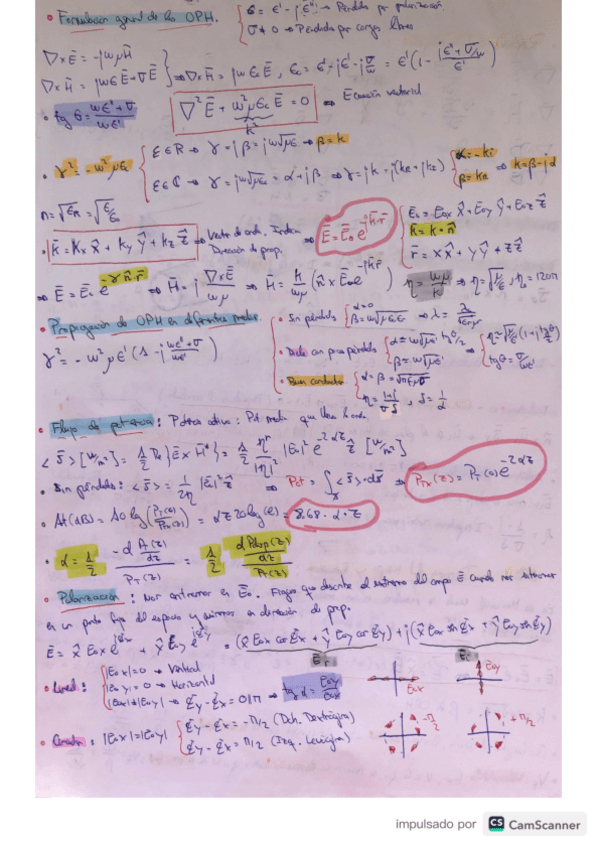 • Formulacion general de las OPH. { ε = ε' - jε'' → Pérdida por polarización.
σ ≠ 0 → Pérdida por cargas libres
∇×Ē = -jωμH̄
∇×H̄ = jωεĒ + σĒ } ⇒ ∇×H̄ = jωεcĒ, εc = ε' - jε'' - jσ/ω = ε'(1 - j(ε''+σ/ω)/ε')
• tg θ = (ωε''+σ)/ωε' ∇²Ē + ω²μεcĒ = 0 ⇒ Ecuación vectorial
k²
• γ² = -ω²μεc { ε∈R → γ = jβ = jω√με → β = k
ε∈C → γ = jω√με = α + jβ ⇒ γ = jk = j(kR + jkI) { α = -kI
β = kR ⇒ k = β - jα
n = √εR = √(ε/ε0)
• k̄ = kx x̂ + ky ŷ + kz ẑ ⇒ Vector de onda. Indica Dirección de prop. ⇒ Ē = Ē0 e^(-j k̄·r̄) { Ē0 = E0x x̂ + E0y ŷ + E0z ẑ
k̄ = k·n̂
r̄ = x x̂ + y ŷ + z ẑ
⇒ Ē = Ē0 e^(-γ n̂·r̄) ⇒ H̄ = j ∇×Ē/ωμ ⇒ H̄ = k/ωμ (n̂ × Ē0 e^(-j k̄·r̄)) η = ωμ/k ⇒ η = √(μ/ε), η0 = 120π
• Propagación de OPH en diferentes medios. • Sin pérdidas { α = 0
β = ω√με ⇒ λ = λ0/√εrμr
γ² = -ω²με'(1 - j(ωε''+σ)/ωε')
• Dielec con pocas pérdidas { α = ω√με' tgθ/2
β = ω√με' ⇒ η = √(μ/ε')(1 + j tgθ/2)
• Buen conductor { α = β = √πfμσ
η = (1+j)/σδ, δ = 1/α
• Flujo de potencia: Potencia activa: Pot media que lleva la onda
<S̄> [W/m²] = 1/2 Re{Ē × H̄*} = 1/2 ηr/|η|² |E0|² e^(-2αz) ẑ [W/m²]
• Sin pérdidas: <S̄> = 1/2η |E0|² ẑ ⇒ Pot = ∫s <S̄>·ds̄ ⇒ PTx(z) = PT(0)e^(-2αz)
• At(dB) = 10 log(PT(0)/PT(z)) = αz 20 log(e) = 8.68·α·z
• α = 1/2 (-dPT(z)/dz)/PT(z) = 1/2 (dPdisp(z)/dz)/PT(z)
• Polarización: Nos centramos en Ē0. Figura que describe el extremo del campo Ē cuando nos situamos
en un punto fijo del espacio y miramos en dirección de prop.
Ē = x̂ E0x e^(jξx) + ŷ E0y e^(jξy) = (x̂ E0x cos ξx + ŷ E0y cos ξy) + j(x̂ E0x sin ξx + ŷ E0y sin ξy)
Ēr Ēi
• Lineal: { |E0x| = 0 → Vertical
|E0y| = 0 → Horizontal
|E0x| ≠ |E0y| → ξy - ξx = 0 ó π → tg α = E0y/E0x
E0x E0y
• Circular: |E0x| = |E0y| { ξy - ξx = -π/2 (Dch. Dextrógira)
ξy - ξx = π/2 (Izq. Levógira)
-π/2 +π/2
impulsado por CS CamScanner